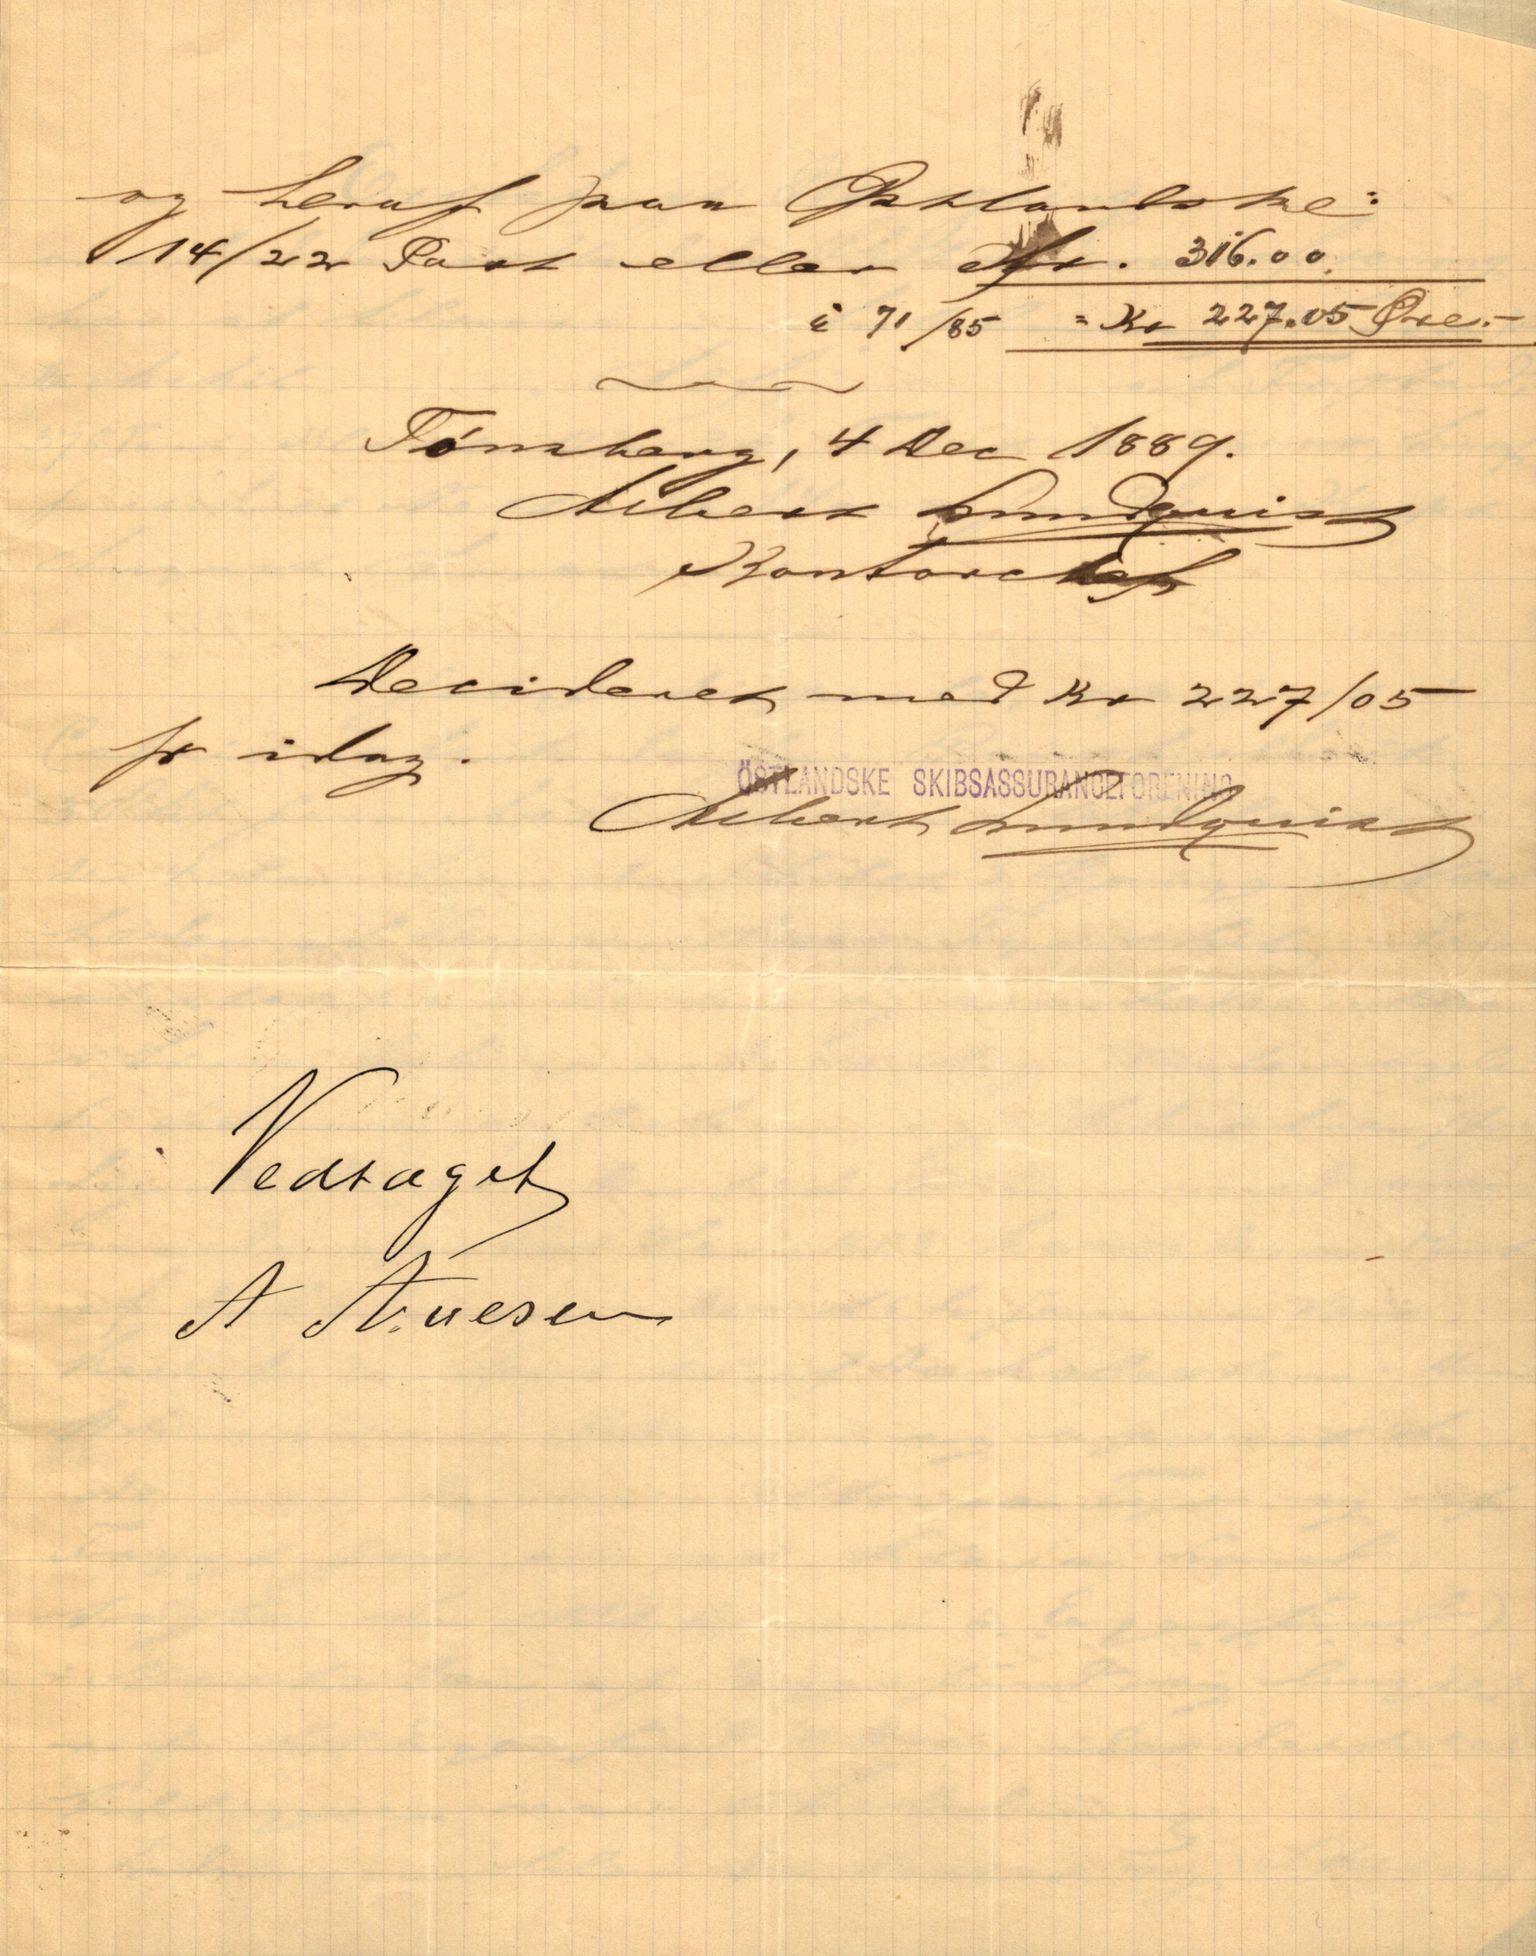 og heraf paa Østlandske:
14/22 Part eller frs. 316.00.
à 71/85 = Kr 227.05 Øre.-
Tönsberg, 4 Dec 1889.
Albert Lundquist
Kontorchef
Decideret med Kr 227/05
pr idag.
ÖSTLANDSKE SKIBSASSURANCEFORENING
Albert Lundquist
Vedtaget
A